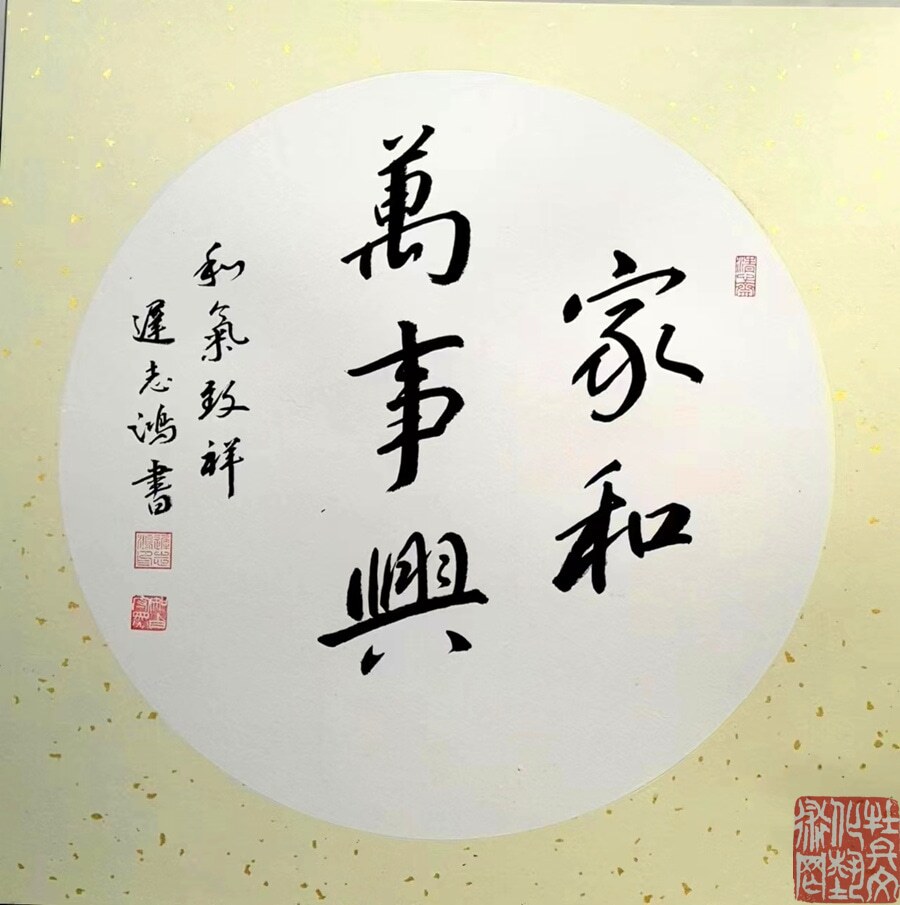 家和
萬事興
和氣致祥
遲志鴻書